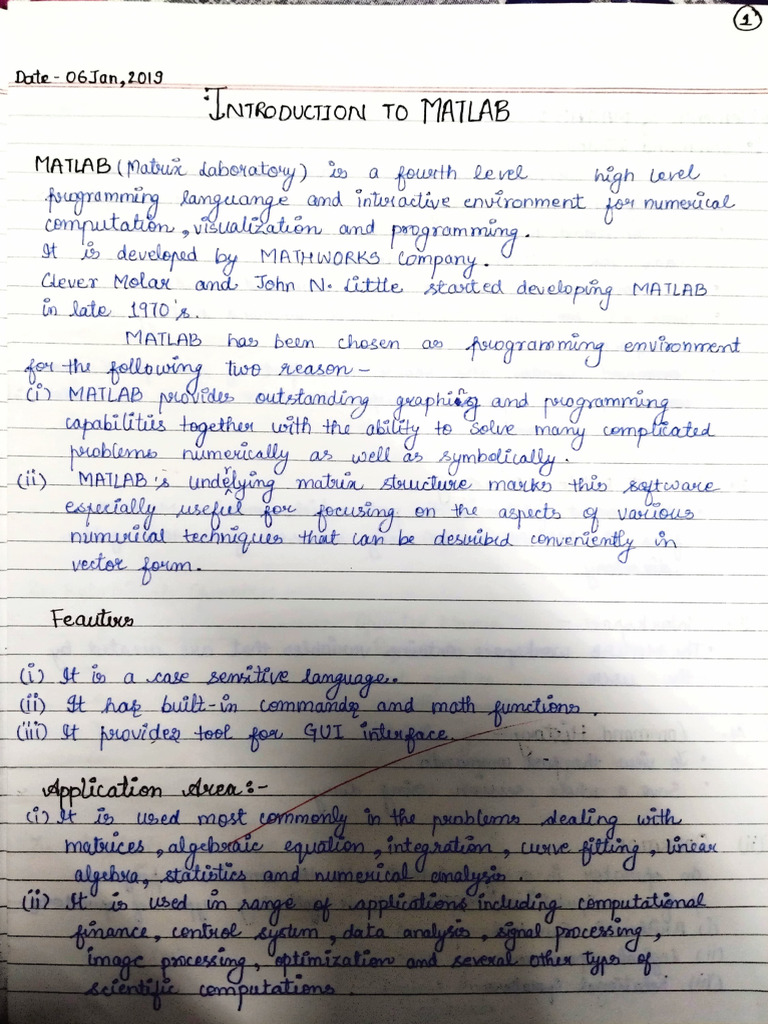 1
Date - 06 Jan, 2019
:INTRODUCTION TO MATLAB
MATLAB (Matrix Laboratory) is a fourth level high level
programming languange and interactive environment for numerical
computation, visualization and programming.
It is developed by MATHWORKS Company.
Clever Molar and John N. Little started developing MATLAB
in late 1970's.
MATLAB has been chosen as programming environment
for the following two reason -
(i) MATLAB provides outstanding graphing and programming
capabilities together with the ability to solve many complicated
problems numerically as well as symbolically.
(ii) MATLAB's underlying matrix structure marks this software
especially useful for focusing on the aspects of various
numerical techniques that can be described conveniently in
vector form.
Feauters
(i) It is a case sensitive language..
(ii) It has built-in commands and math functions.
(iii) It provides tool for GUI interface.
Application Area:-
(i) It is used most commonly in the problems dealing with
matrices, algebraic equation, integration, curve fitting, linear
algebra, statistics and numerical analysis.
(ii) It is used in range of applications including computational
finance, control system, data analysis, signal processing,
image processing, optimization and several other types of
scientific computations.